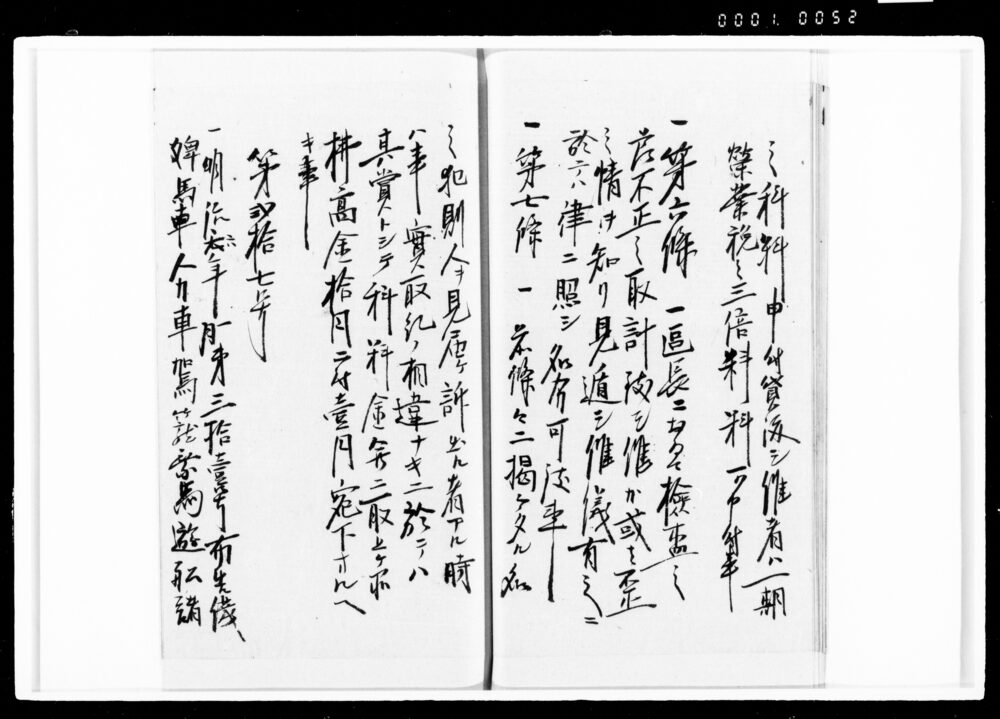 0001.0052
之科料申付貸渡シ候者ハ一期
營業税之三倍科料可申付事
一第六條 一區長ニおゐて檢査之
節不正之取計致シ候か或は不正
之情ヲ知リ見遁シ候儀有之ニ
於テハ律ニ照シ處分可致事
一第七條 一前條々ニ揭ケタル
之犯則人ヲ見届ケ訴出ル者アル時
ハ事實取糺ノ相違ナキニ於テハ
其賞トシテ科料金ノ内ニ取上ケ
耕高金拾円ニ付壹円宛下ケルヘ
キ事
第貳拾七号
一明治六年一月第三拾壹号布告僕
婢馬車人力車駕籠乗馬遊船諸